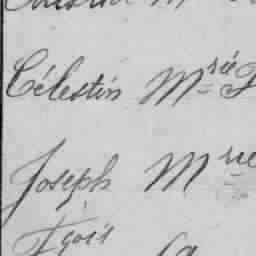 Célestin Mrie
Joseph Mrie
Fçois